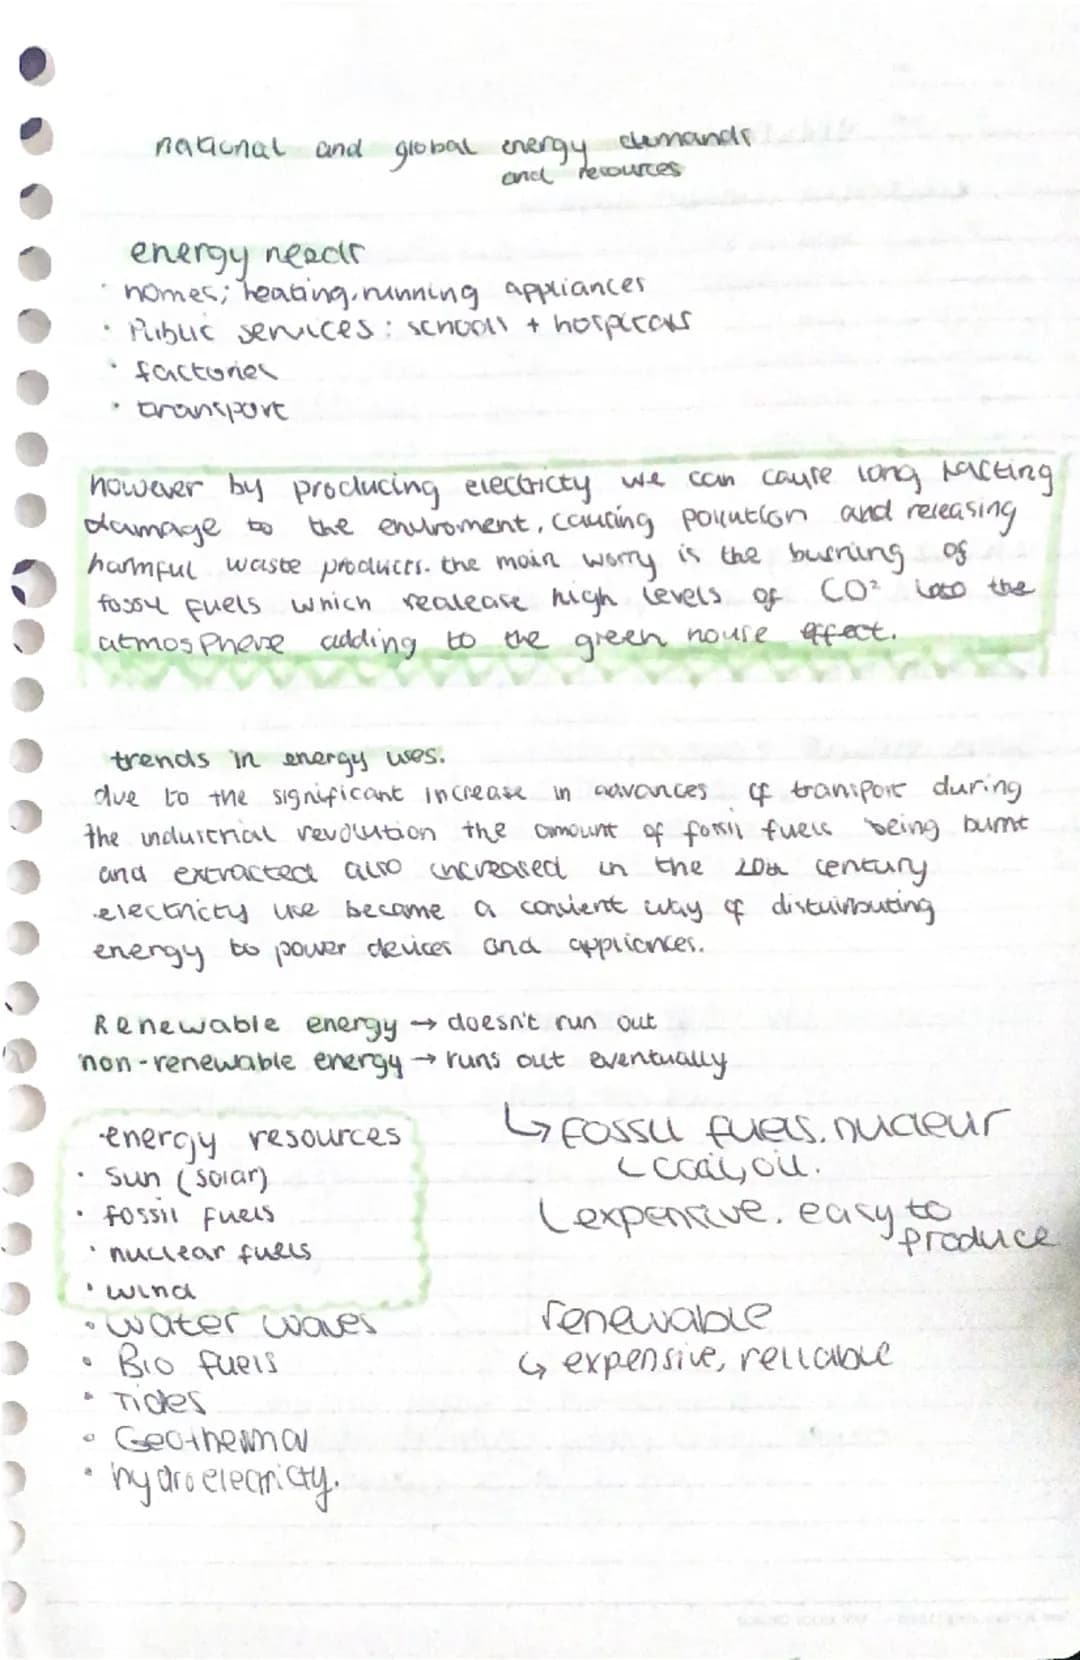 national and global energy demands
and resources
energy needs
· homes; heating, running appliances
· Public services: schools + hospitals
· factories
· transport
however by producing electricty we can cause long lasting
damage to the enviroment, causing pollution and releasing
harmful waste products. the main worry is the burning of
fossil fuels which realease high levels of CO² into the
atmosphere adding to the green house effect.
trends in energy uses.
due to the significant increase in advances of transport during
the industrial revolution the amount of fossil fuels being burnt
and extracted also increased in the 20th century
electricty use became a convient way of distuirbuting
energy to power devices and appliances.
Renewable energy → doesn't run out
non-renewable energy → runs out eventually
↳ fossil fuels, nucleur
↳ coal, oil.
↳ expensive, easy to
produce
·energy resources
· Sun (solar)
· fossil fuels
· nuclear fuels
· wind
· water waves
· Bio fuels
· Tides
· Geothermal
· hydroelectricty.
renewable
↳ expensive, reliable